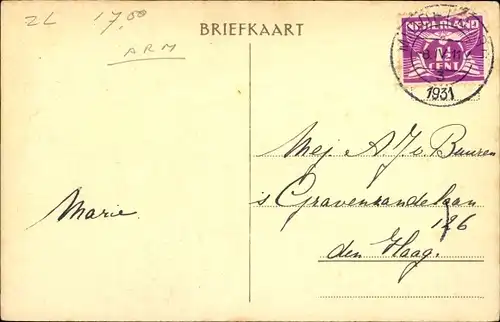 ZL 17,00
ARM
BRIEFKAART
NEDERLAND
1½
CENT
1931
Mej. A. J. v. Buuren
's Gravenzandelaan
126
den Haag.
Marie.